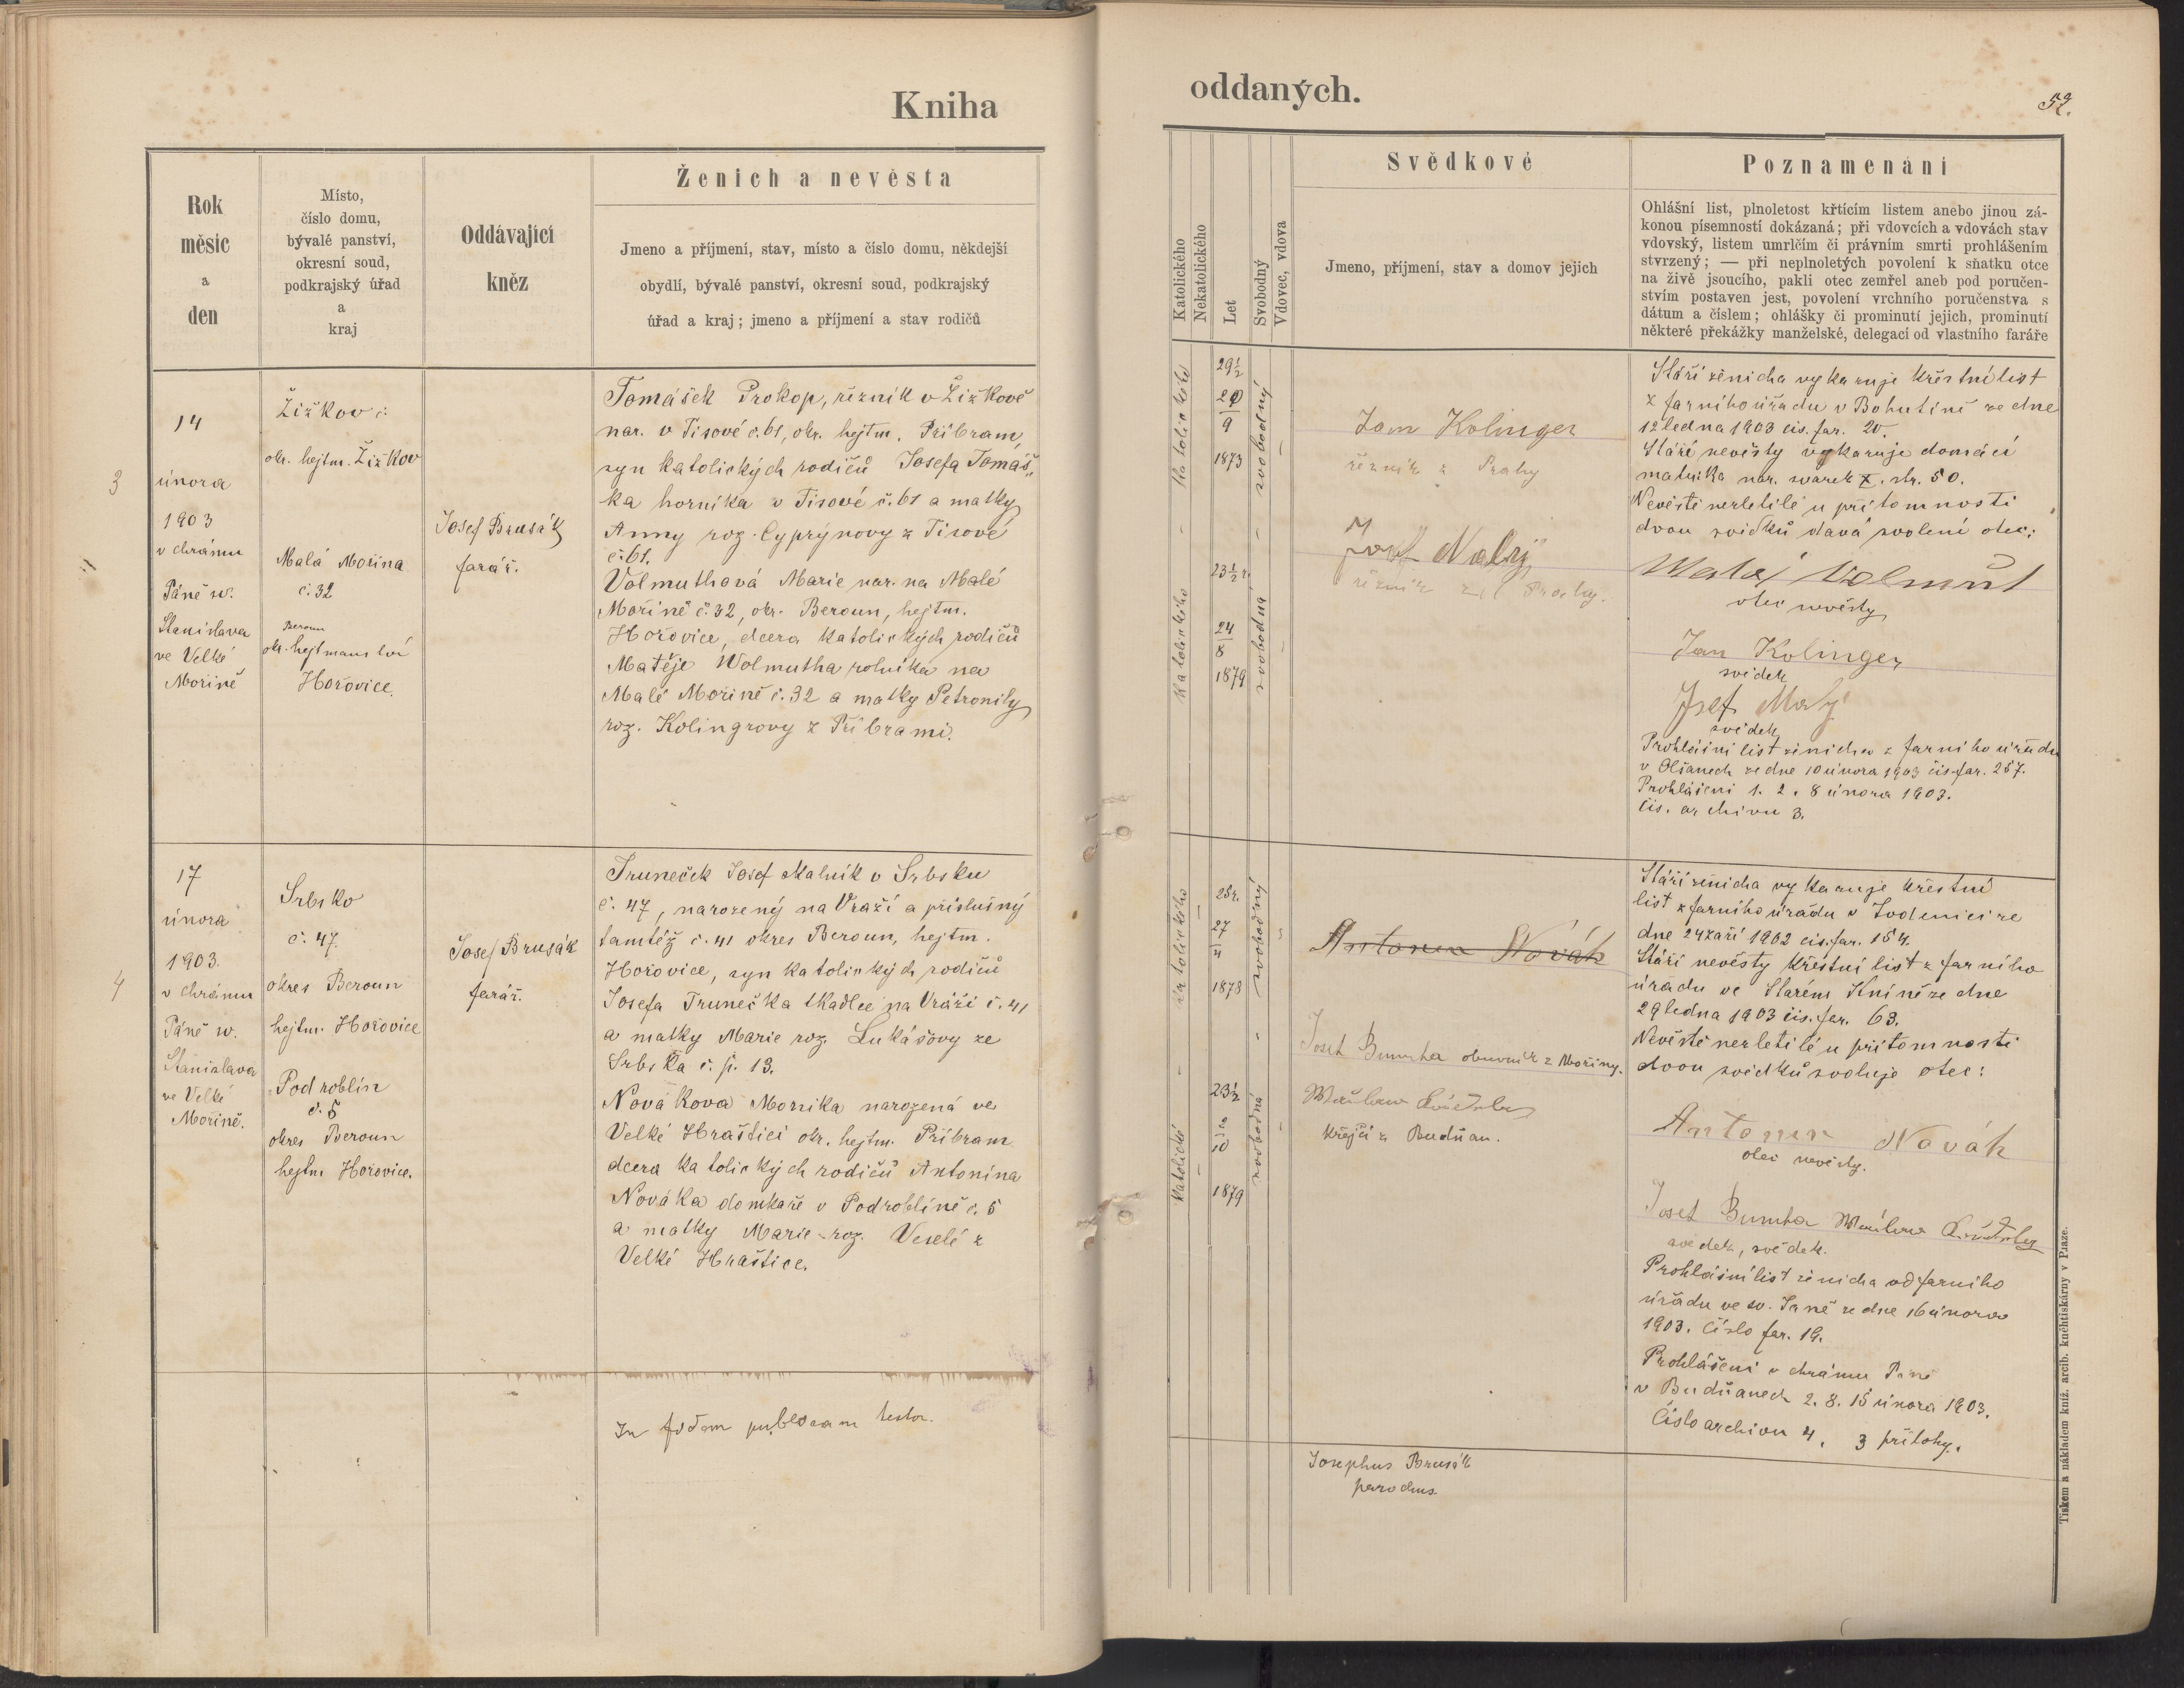 Kniha
oddaných.
52.
Rok
měsíc
a
den
Místo,
číslo domu,
bývalé panství,
okresní soud,
podkrajský úřad
a
kraj
Oddávající
kněz
Ženich a nevěsta
Jmeno a příjmení, stav, místo a číslo domu, někdejší
obydlí, bývalé panství, okresní soud, podkrajský
úřad a kraj; jmeno a příjmení a stav rodičů
Katolického
Nekatolického
Let
Svobodný
Vdovec, vdova
Svědkové
Jmeno, příjmení, stav a domov jejich
Poznamenání
Ohlášní list, plnoletost křtícím listem anebo jinou zá-
konou písemností dokázaná; při vdovcích a vdovách stav
vdovský, listem umrlčím či právním smrti prohlášením
stvrzený; — při neplnoletých povolení k sňatku otce
na živě jsoucího, pakli otec zemřel aneb pod poručen-
stvím postaven jest, povolení vrchního poručenstva s
dátum a číslem; ohlášky či prominutí jejich, prominutí
některé překážky manželské, delegací od vlastního faráře
3
14
února
1903
v chrámu
Páně sv.
Stanislava
ve Velké
Mořině
Žižkov č.
okr. hejtm. Žižkov
Malá Mořina
č. 32
Beroun
okr. hejtmanství
Hořovice.
Josef Brusák
farář.
Tomášek Prokop, řezník v Žižkově
nar. v Tisové č. 61, okr. hejtm. Příbram,
syn katolických rodičů Josefa Tomáš-
ka horníka v Tisové č. 61 a matky
Anny roz. Cyprýnovy z Tisové
č. 61.
Volmuthová Marie nar. na Malé
Mořině č. 32, okr. Beroun, hejtm.
Hořovice, dcera katolických rodičů
Matěje Wolmutha rolníka na
Malé Mořině č. 32 a matky Petronily
roz. Kolingrovy z Příbrami.
29½
9
1873
svobodný
23½ r.
24
8
1879
katolického
svobodná
Jan Kolinger
řezník z Prahy
Josef Malý
řezník z Prahy.
Stáří ženicha vykazuje křestní list
z farního úřadu v Bohutíně ze dne
12 ledna 1903 čís. far. 20.
Stáří nevěsty vykazuje domácí
matrika nar. svazek X. str. 50.
Nevěstě nezletilé u přítomnosti
dvou svědků dává svolení otec:
Matěj Volmut
otec nevěsty
Jan Kolinger
svědek
Josef Malý
svědek
Prohlášní list ženicha z farního úřadu
v Olšanech ze dne 10 února 1903 čís. far. 257.
Prohlášení 1. 2. 8 února 1903.
čís. archivu 3.
4
17
února
1903.
v chrámu
Páně sv.
Stanislava
ve Velké
Mořině.
Srbsko
č. 47.
okres Beroun
hejtm. Hořovice
Podroblín
č. 5
okres Beroun
hejtm Hořovice.
Josef Brusák
farář.
Truneček Josef skalník v Srbsku
č. 47, narozený na Vráži a příslušný
tamtéž č. 41 okres Beroun, hejtm.
Hořovice, syn katolických rodičů
Josefa Trunečka tkadlce na Vráži č. 41
a matky Marie roz. Lukášovy ze
Srbska č. p. 13.
Nováková Monika narozená ve
Velké Hraštici okr. hejtm. Příbram
dcera katolických rodičů Antonína
Nováka domkaře v Podroblíně č. 5
a matky Marie roz. Veselé z
Velké Hraštice.
katolického
25r.
27
1878
svobodný
katolické
23½
10
1879
svobodná
Antonín Novák
Josef Bumba obuvník z Mořiny.
krejčí z Budňan.
Stáří ženicha vykazuje křestní
list z farního úřadu v Loděnici ze
dne 24 září 1902 čís. far. 154.
Stáří nevěsty křestní list z farního
úřadu ve Starém Kníně ze dne
29 ledna 1903 čís. far. 63.
Nevěstě nezletilé u přítomnosti
dvou svědků svoluje otec:
Antonín Novák
otec nevěsty.
Josef Bumba
svědek, svědek.
Prohlášní list ženicha od farního
úřadu ve sv. Janě ze dne 16 února
1903. Číslo far. 19.
Prohlášení v chrámu Páně
v Budňanech 2. 8. 15 února 1903.
Číslo archivu 4. 3 přílohy.
In fidem publicam testor.
Josephus Brusák
parochus.
Tiskem a nákladem kníž. arcib. knihtiskárny v Praze.